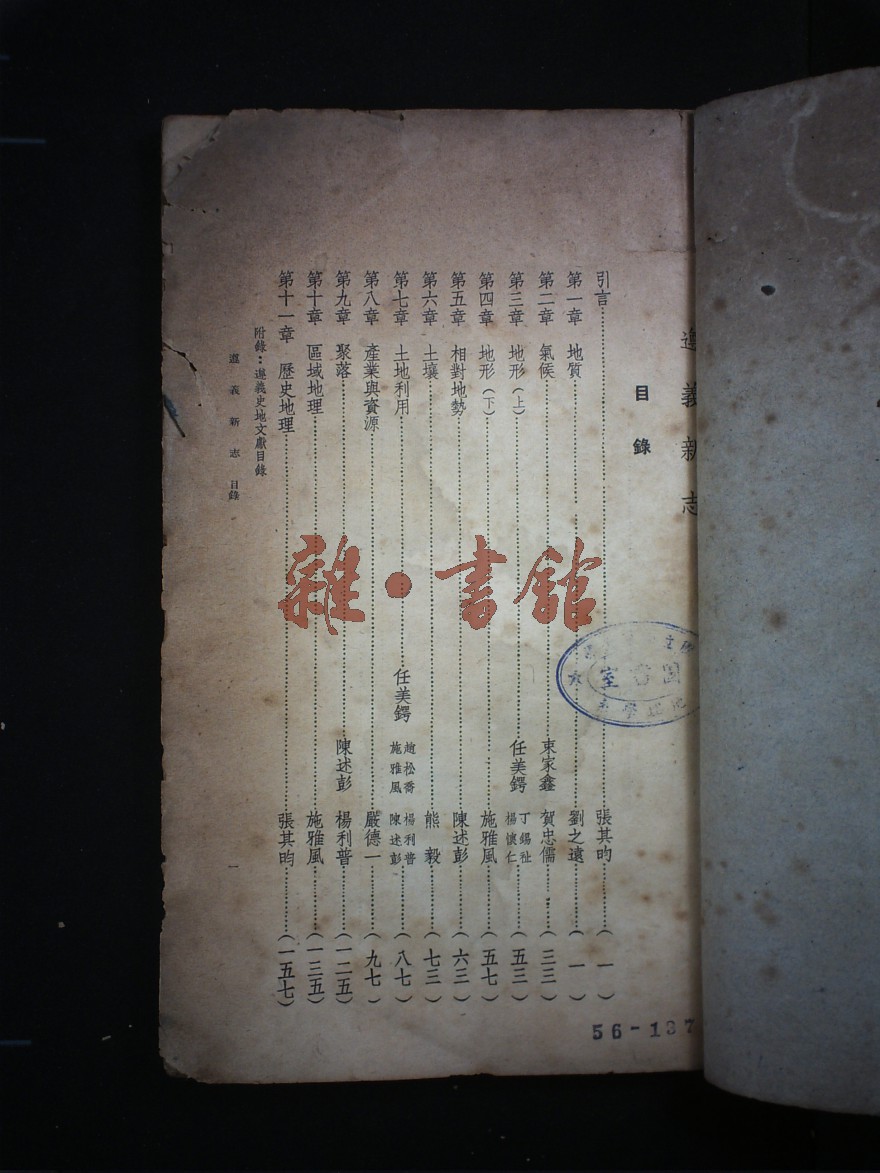 遵義新志
目錄
引言……張其昀……(一)
第一章 地質……劉之遠……(一)
第二章 氣候……束家鑫 賀忠儒……(三三)
第三章 地形(上)……任美鍔 丁錫祉 楊懷仁……(五三)
第四章 地形(下)……施雅風……(五七)
第五章 相對地勢……陳述彭……(六三)
第六章 土壤……熊毅……(七三)
第七章 土地利用……任美鍔 趙松喬 施雅風 楊利普 陳述彭……(八七)
第八章 產業與資源……嚴德一……(九七)
第九章 聚落……陳述彭 楊利普……(一二五)
第十章 區域地理……施雅風……(一三五)
第十一章 歷史地理……張其昀……(一五七)
附錄:遵義史地文獻目錄
遵義新志 目錄
一
雜·書館
圖書室
56-137